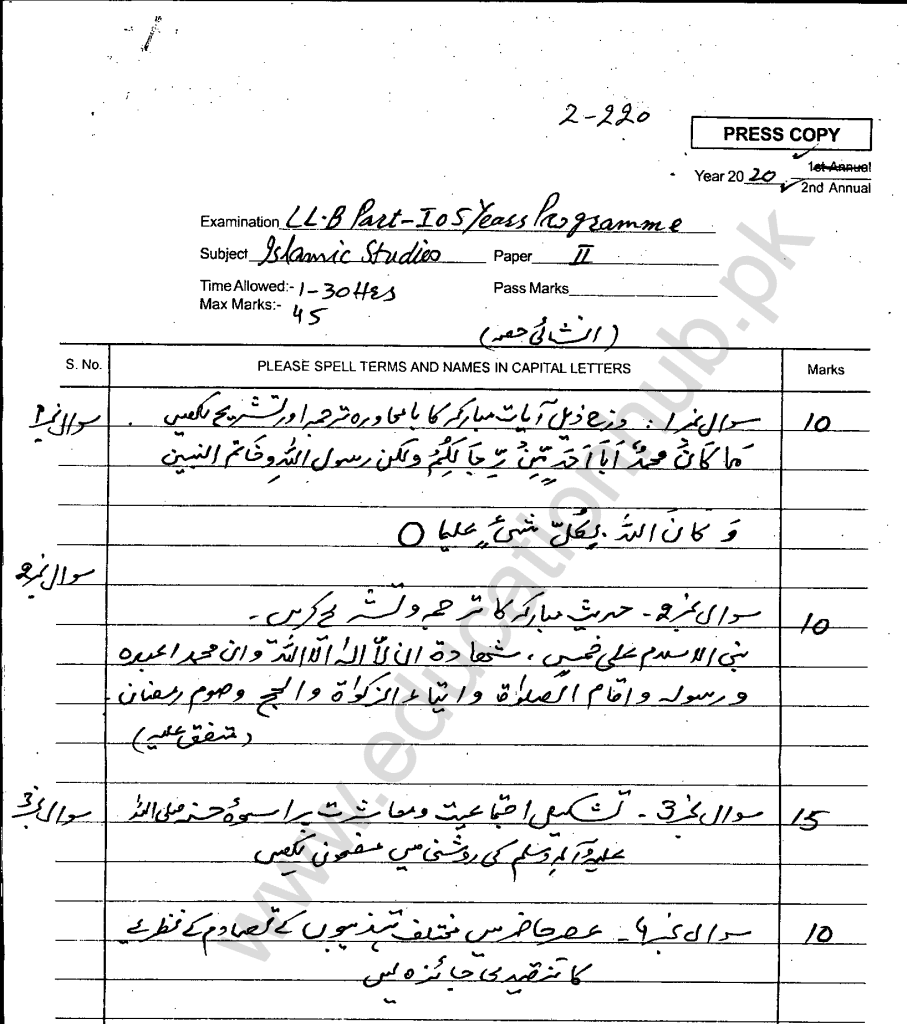 2-220
PRESS COPY
Year 2020 1st Annual
2nd Annual
Examination LL.B Part-I 05 Years Programme
Subject Islamic Studies Paper II
Time Allowed:- 1-30 Hrs Pass Marks
Max Marks:- 45
(انشائی حصہ)
S. No. PLEASE SPELL TERMS AND NAMES IN CAPITAL LETTERS Marks
سوال نمبر 1 سوال نمبر 1: درج ذیل آیات مبارکہ کا بامحاورہ ترجمہ اور تشریح لکھیں 10
مَا كَانَ محمدٌ اَبَا اَحَدٍ مِّنْ رِّجَالِكُمْ ولكن رسول اللہ وخَاتم النبین
وَ كَانَ اللہُ بِكُلِّ شَیْءٍ علیما O
سوال نمبر 2
سوال نمبر 2۔ حدیث مبارکہ کا ترجمہ و تشریح کریں۔ 10
بنی الاسلام علی خمس، شھادة ان لاّ الہ الّا اللہ وان محمدا عبدہ
ورسولہ واقام الصلوٰة وایتاء الزکوٰة والحج وصوم رمضان۔
(متفق علیہ)
سوال نمبر 3 سوال نمبر 3۔ تشکیل اجتماعیت ومعاشرت پر اسوۂ حسنہ صلی اللہ 15
علیہ وآلہ وسلم کی روشنی میں مضمون لکھیں
سوال نمبر 4۔ عصر حاضر میں مختلف تہذیبوں کے تصادم کے نظریے 10
کا تنقیدی جائزہ لیں
www.educationhub.pk